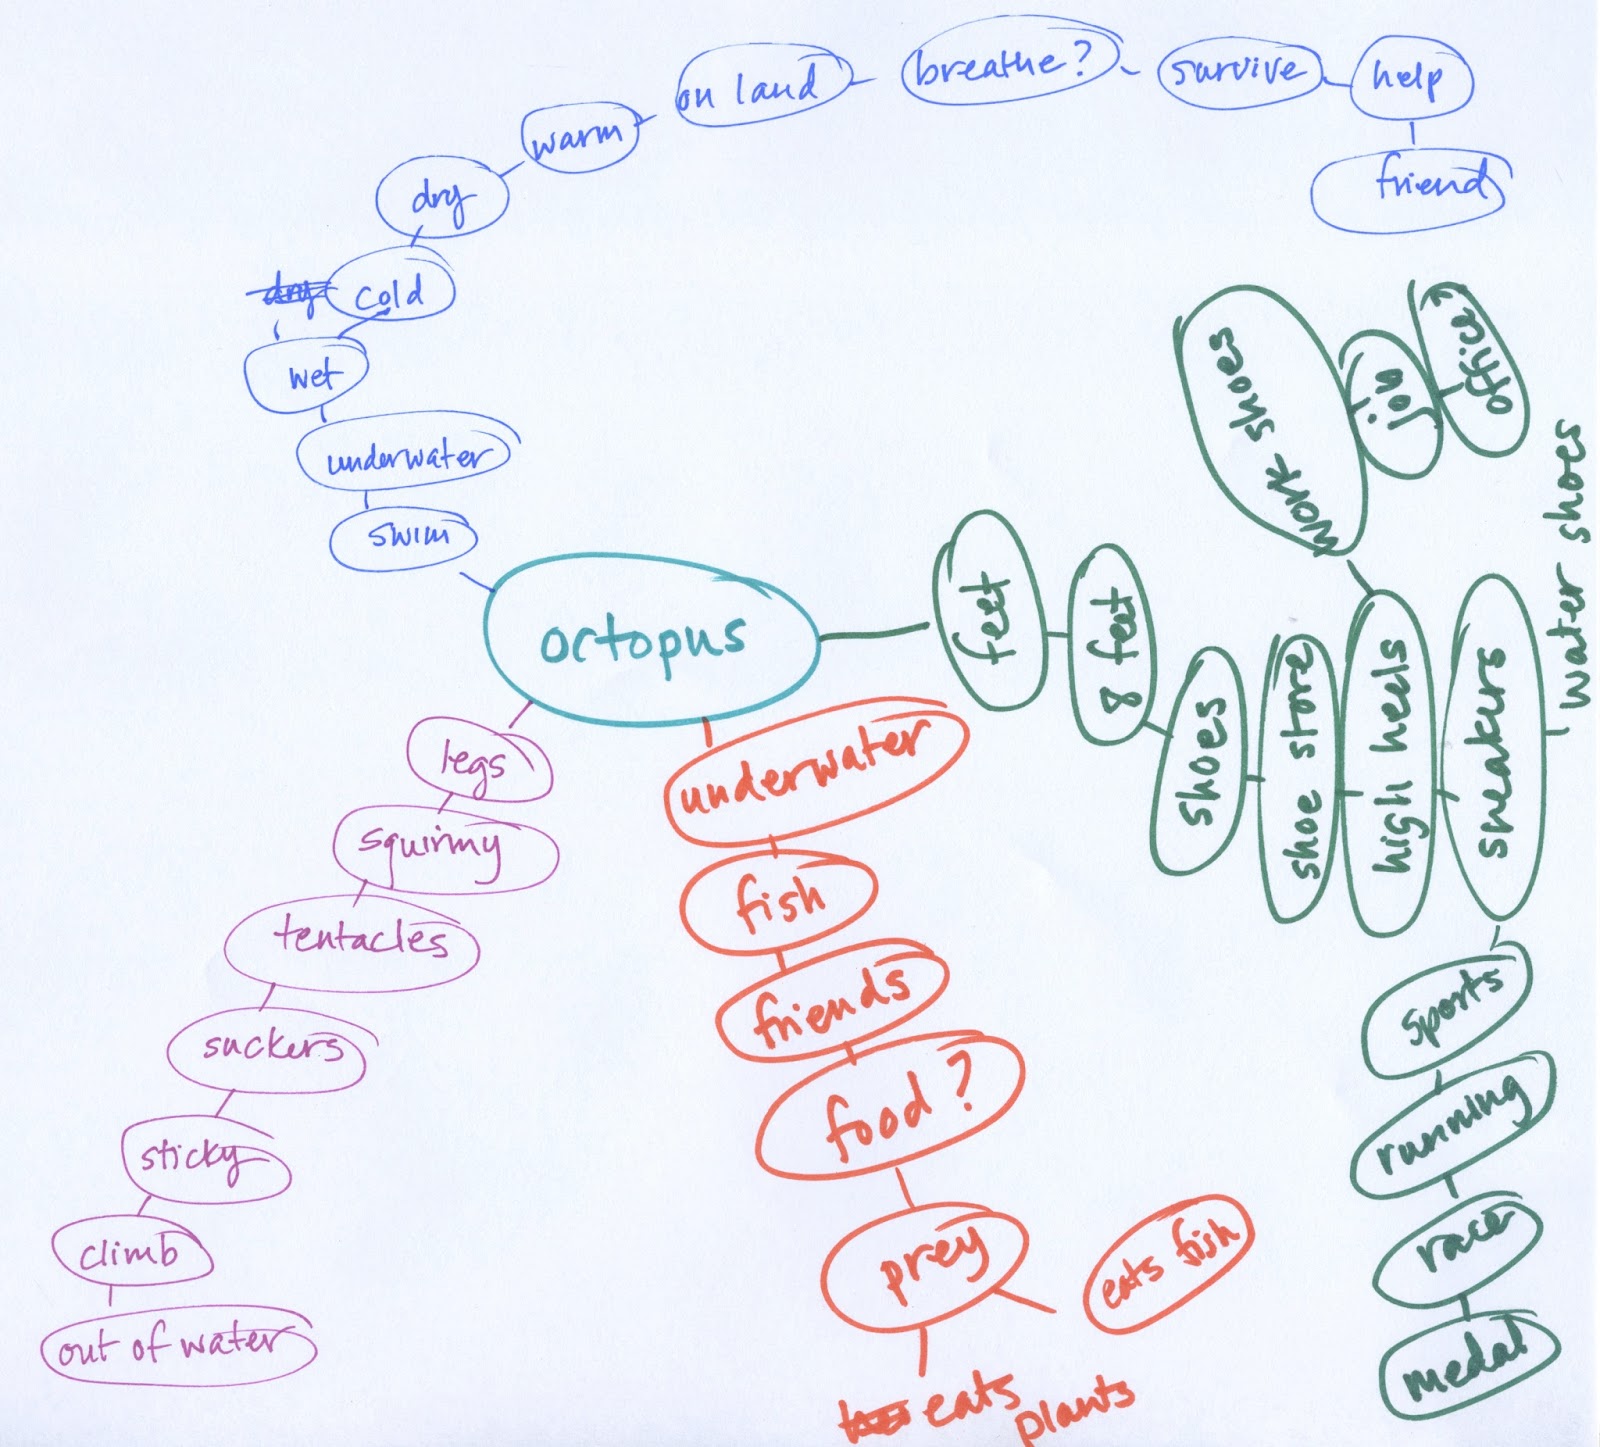 octopus
swim
underwater
wet
dry
cold
dry
warm
on land
breathe?
survive
help
friend
feet
8 feet
shoes
shoe store
high heels
work shoes
job
office?
sneakers
water shoes
sports
running
race
medal
underwater
fish
friends
food?
prey
eats fish
eats
plants
legs
squirmy
tentacles
suckers
sticky
climb
out of water